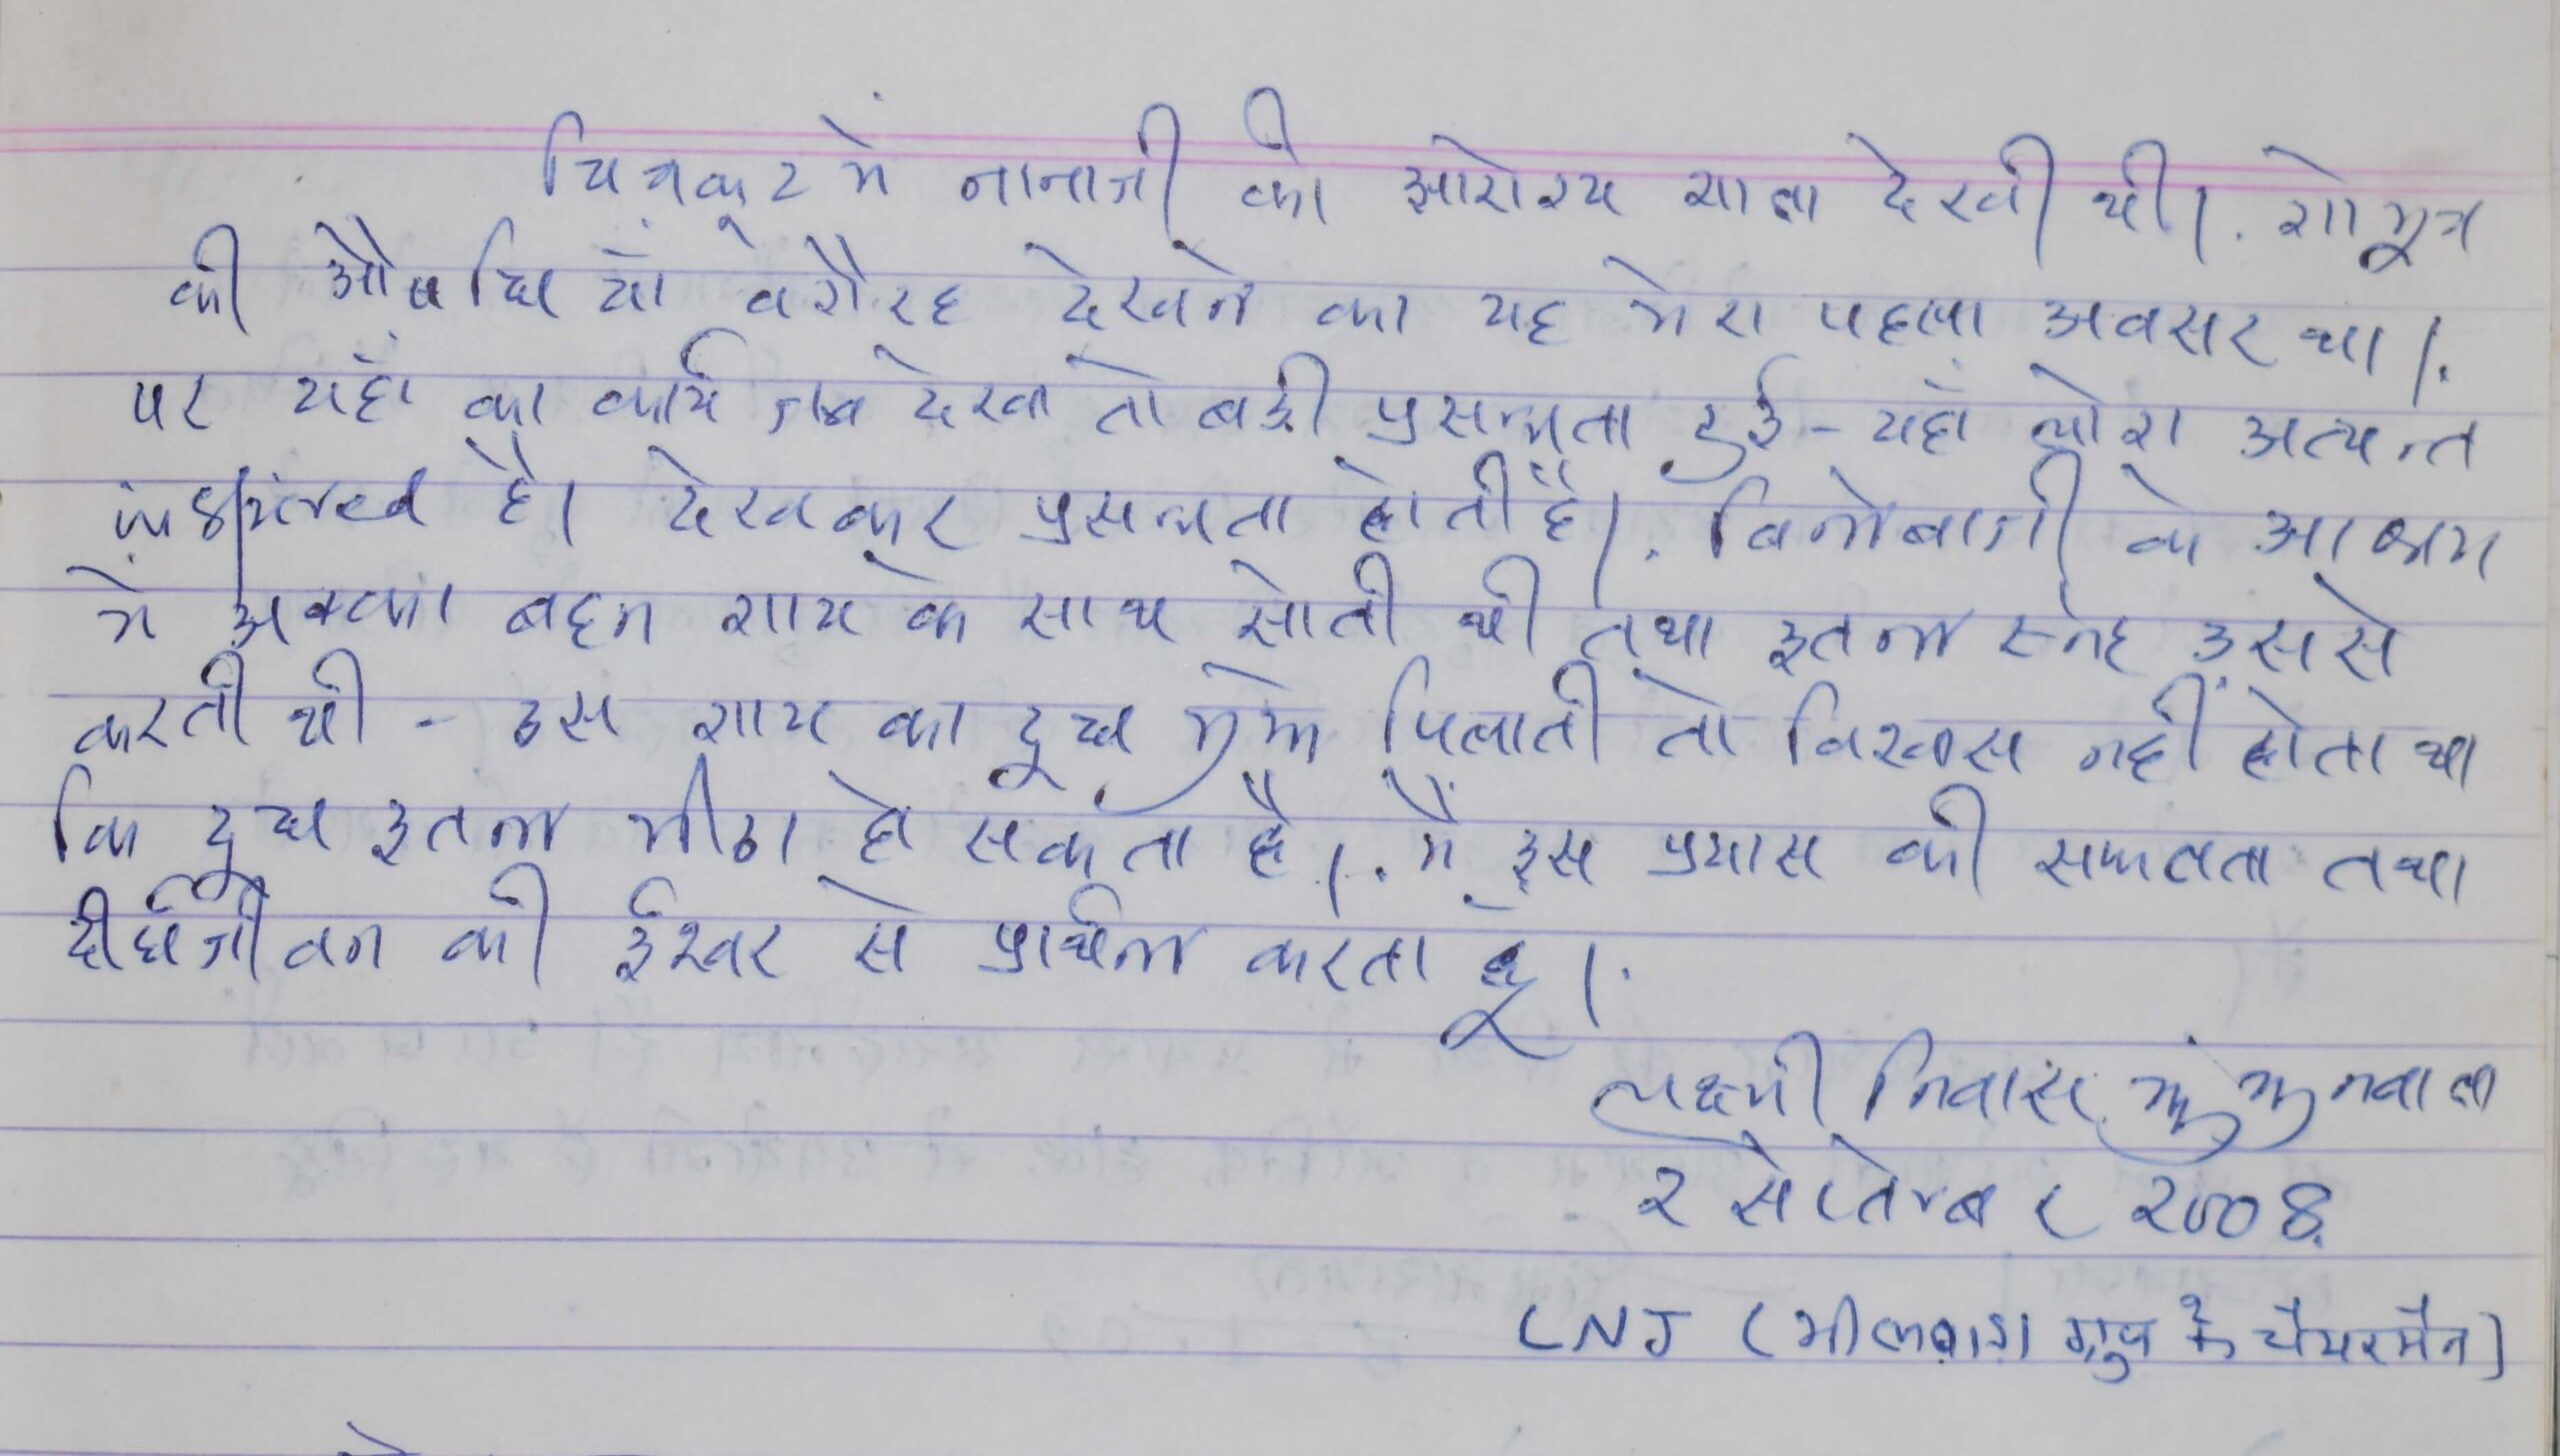 चित्रकूट में नानाजी की आरोग्य शाला देखी थी। गोमूत्र
की औषधियाँ वगैरह देखने का यह मेरा पहला अवसर था।
पर यहाँ का कार्य जब देखा तो बड़ी प्रसन्नता हुई - यहाँ लोग अत्यन्त
inspired है। देखकर प्रसन्नता होती है। विनोबाजी के आश्रम
मे अक्का बहन गाय के साथ सोती थी तथा इतना स्नेह उससे
करती थी - उस गाय का दूध मुझे पिलाती तो विश्वास नहीं होता था
कि दूध इतना मीठा हो सकता है। मैं इस प्रयास की सफलता तथा
दीर्घजीवन की ईश्वर से प्रार्थना करता हूं।
लक्ष्मी निवास झुंझुनवाला
२ सेप्तेम्बर २००४
LNJ (भीलवाड़ा ग्रुप के चैयरमैन)